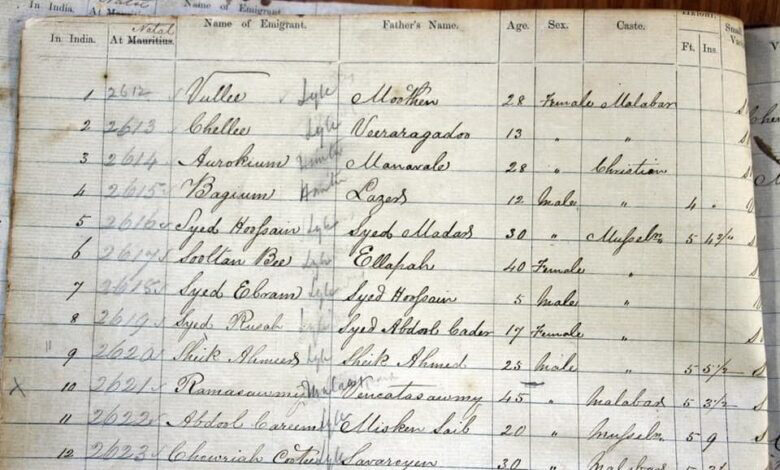 Name of Emigrant
In India. At Mauritius. Natal Name of Emigrant. Father's Name. Age. Sex. Caste. Height Ft. Ins.
1 2612 Vullee Lyle Moothen 28 Female Malabar
2 2613 Chellee Lyle Veeraragadoo 13 " "
3 2614 Aurokium Smith Manavale 28 " Christian
4 2615 Bagium Smith Lazer 12 Male " 4 "
5 2616 Syed Hoossain Lyle Syed Madar 30 " Musseln 5
6 2617 Sooltan Bee Lyle Ellapah 40 Female "
7 2618 Syed Ebram Lyle Syed Hoossain 5 Male "
8 2619 Syed Rusah Lyle Syed Abdool Cader 17 Female "
9 2620 Sheik Ahmeed Lyle Sheik Ahmed 25 Male " 5 5 1/2
x 10 2621 Ramasawmy Vencatasawmy 45 " Malabar 5 3 1/2
11 2622 Abdool Careem Lyle Misken Saib 20 " Musseln 5 9
12 2623 Chowriah Lyle Savaroyen 30 " Malabar 5